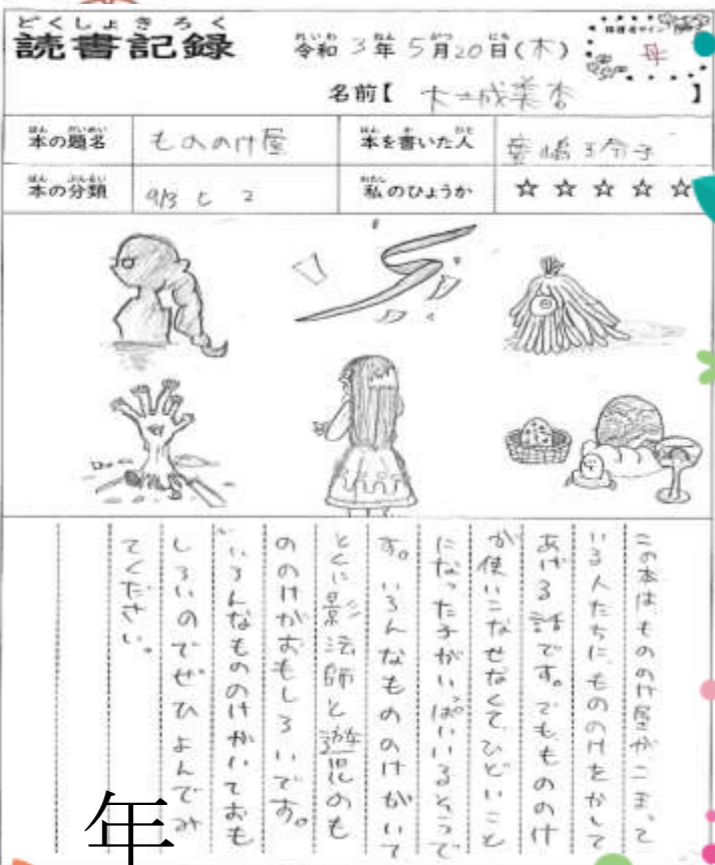 どくしょきろく
読書記録
れいわ ねん がつ にち
令和 3年 5月20日(木)
保護者サイン
名前【 大城美杏 】
ほん だいめい
本の題名
もののけ屋
ほん か ひと
本を書いた人
ほん ぶんるい
本の分類
913
わたし
私のひょうか
☆ ☆ ☆ ☆ ☆
この本はもののけ屋がこまって
いる人たちに、もののけをかして
あげる話です。でも、もののけ
が使いこなせなくて、ひどいこと
になった子がいっぱいいるそうで
す。いろんなもののけがいて
とくに影法師と遊児のも
ののけがおもしろいです。
いろんなもののけがいておも
しろいのでぜひよんでみ
てください。
年